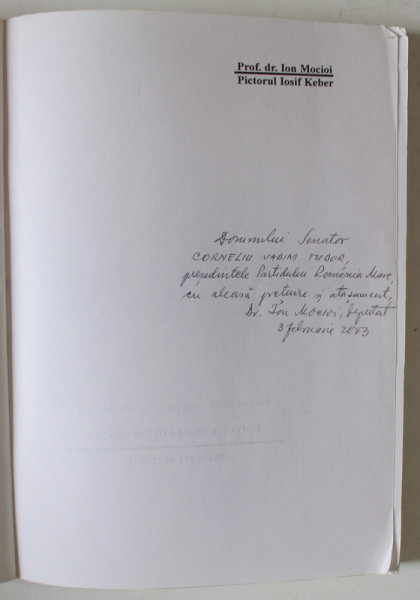 Prof. dr. Ion Mocioi
Pictorul Iosif Keber
Domnului Senator
CORNELIU VADIM TUDOR,
președintele Partidului România Mare,
cu aleasă prețuire și atașament,
Dr. Ion Mocioi, deputat
3 februarie 2003